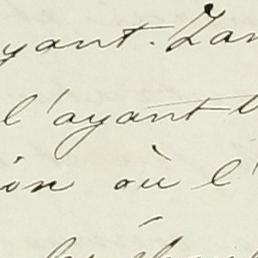 yant. Zan
l'ayant t
ion où l'